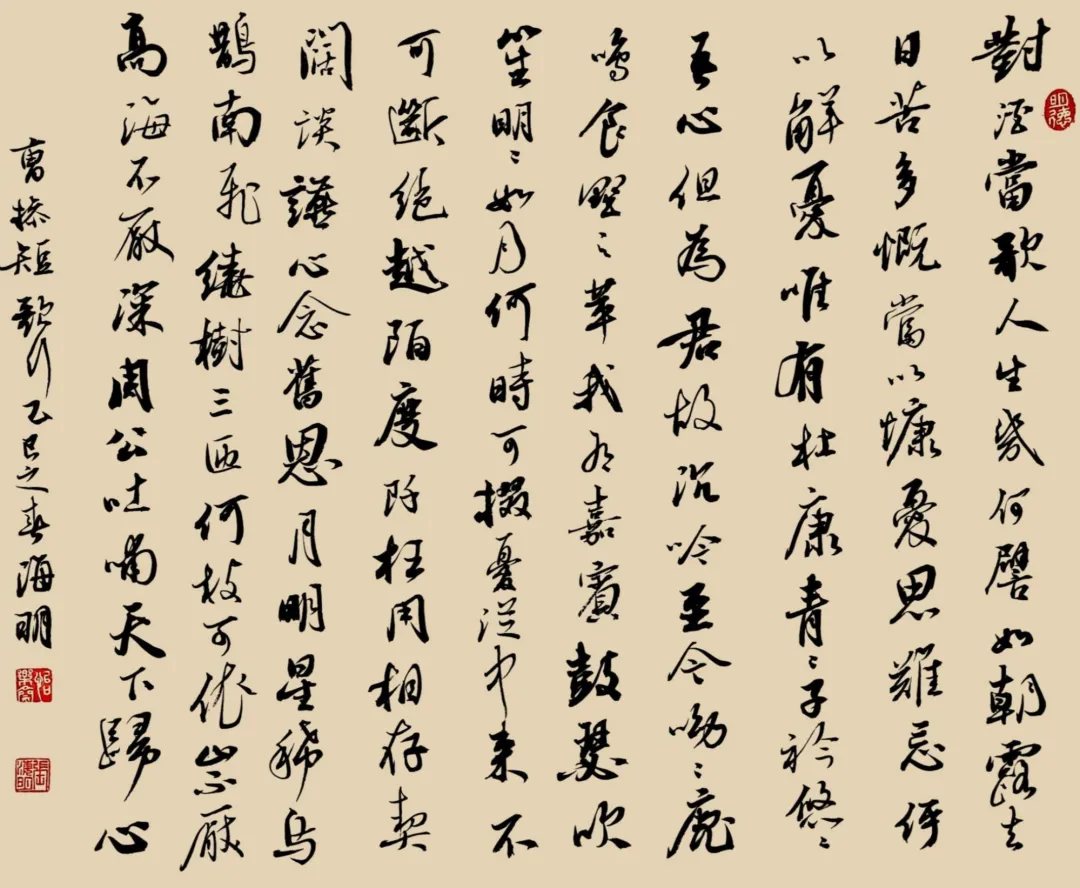 明德
對酒當歌人生幾何譬如朝露去
日苦多慨當以慷憂思難忘何
以解憂唯有杜康青〻子衿悠〻
吾心但為君故沉吟至今呦〻鹿
鳴食野之苹我有嘉賓鼓瑟吹
笙明〻如月何時可掇憂從中來不
可斷絕越陌度阡枉用相存契
闊談讌心念舊恩月明星稀烏
鵲南飛繞樹三匝何枝可依山不厭
高海不厭深周公吐哺天下歸心
曹操短歌行乙巳之春海明
張海明